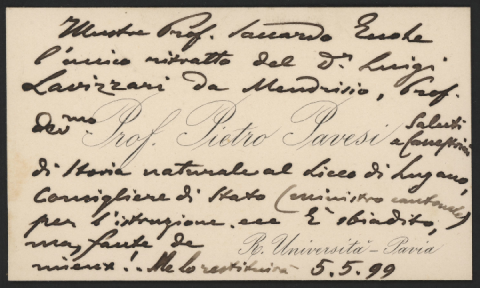 Illustre Prof. Saccardo Eccole
l'unico ritratto del Dr. Luigi
Lavizzari da Mendrisio, Prof.
dev.mo Prof. Pietro Pavesi Saluti
a Canestrini
di Storia naturale al Liceo di Lugano,
Consigliere di Stato (ministro cantonale)
per l'istruzione ecc È sbiadito,
ma, faute de
mieux!. Me lo restituirà 5.5.99
R. Università - Pavia